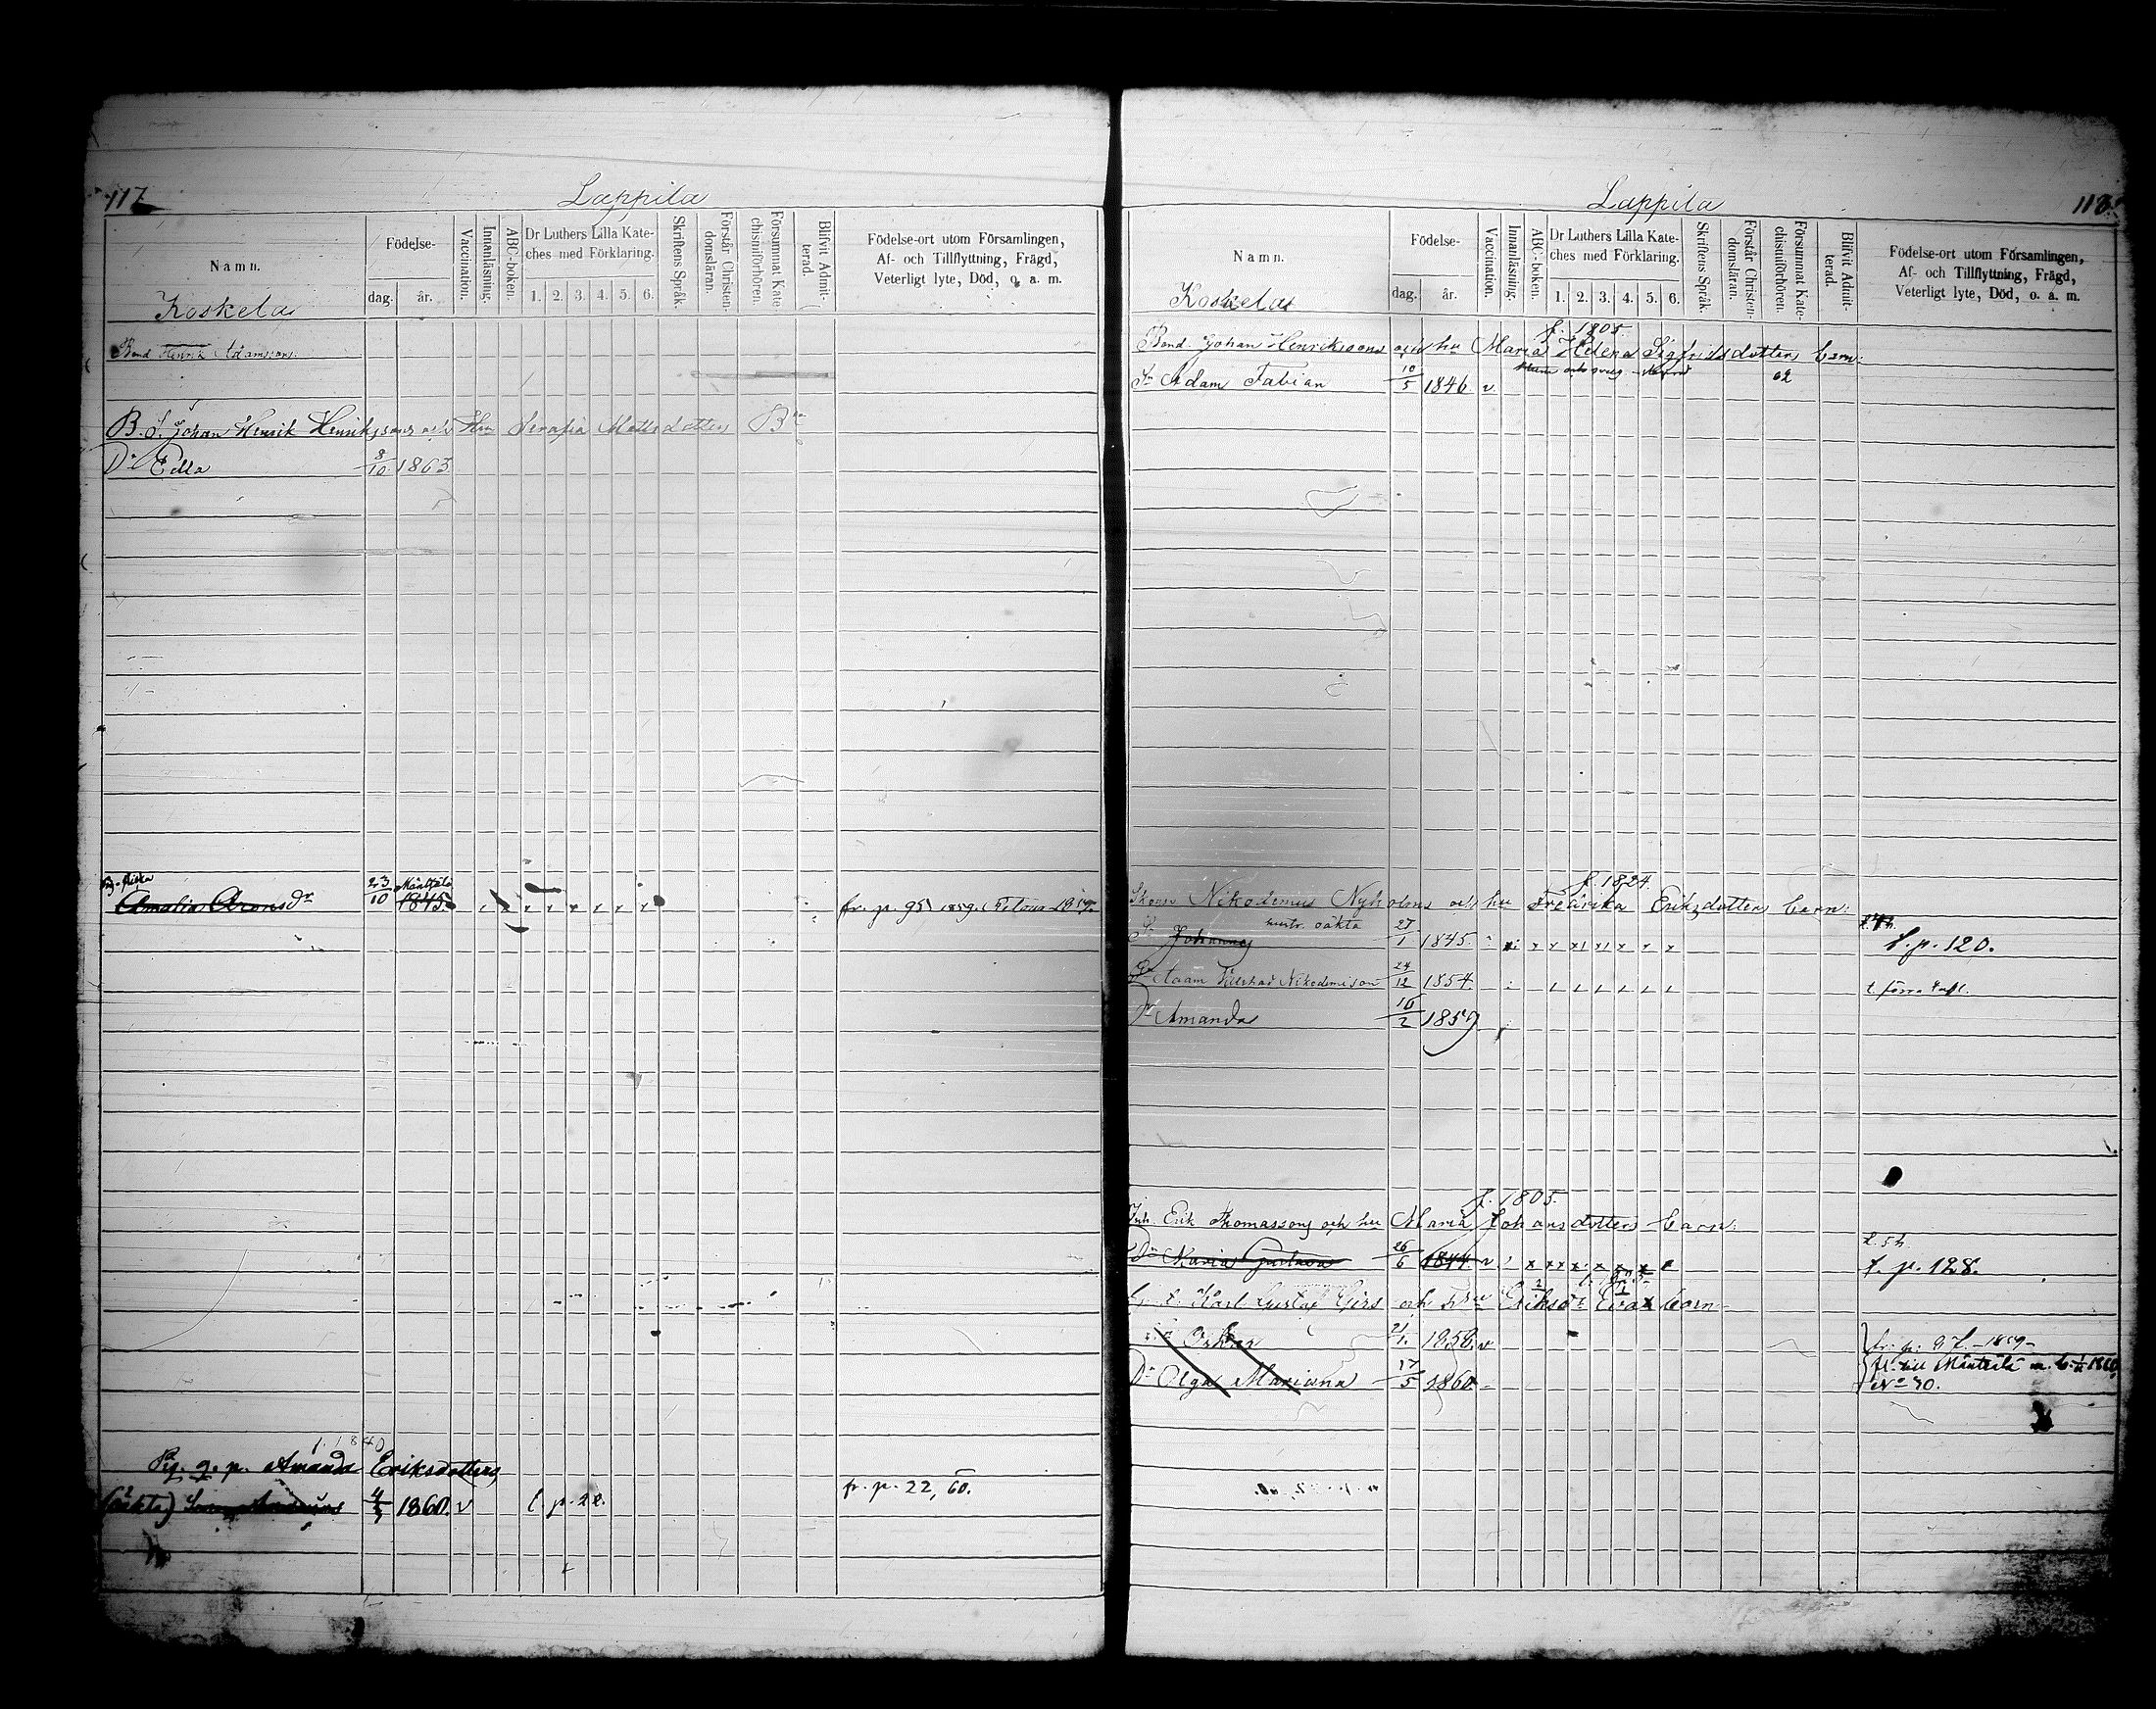 117
Lappila
Namn.
Födelse-
dag.
år.
Vaccination.
Innanläsning.
ABC-boken.
Dr Luthers Lilla Kate-
ches med Förklaring.
1. 2. 3. 4. 5. 6.
Skriftens Språk.
Förstår Christen-
domsläran.
Försummat Kate-
chismiförhören.
Blifvit Admit-
terad.
Födelse-ort utom Församlingen,
Af- och Tillflyttning, Frägd,
Veterligt lyte, Död, o. a. m.
Koskela
Bond Henrik Adamssons
B. S. Johan Henrik Henrikssons och Hu Serafia Mattsdotters Bn
Dr Edla 8/10 1863
Amalia Aronsdr 23/10 Mäntsälä 1843. fr. p. 95 1859.
f. 1840
Pig. q. p. Amanda Eriksdotters
(oäkta) 1860. v t. p. 22. fr. p. 22, 60.
118.
Lappila
Namn.
Födelse-
dag.
år.
Vaccination.
Innanläsning.
ABC-boken.
Dr Luthers Lilla Kate-
ches med Förklaring.
1. 2. 3. 4. 5. 6.
Skriftens Språk.
Förstår Christen-
domsläran.
Försummat Kate-
chismiförhören.
Blifvit Admit-
terad.
Födelse-ort utom Församlingen,
Af- och Tillflyttning, Frägd,
Veterligt lyte, Död, o. a. m.
Koskela
f. 1805.
Bond. Johan Henrikssons och hu Maria Helena Sigfridsdotters barn:
Sn Adam Fabian 10/5 1846 v. 62
f. 1824.
Nikodemus Nyholms och hu Fredrika Eriksdotters barn:
hustr. oäkta
Sn Johannes 27/1 1845. t. p. 120.
Sn Adam Nikodemison 24/12 1854. t. förra
Dr Amanda 16/2 1857
f. 1805.
Inh. Erik Thomassons och hu Maria Johansdotters barn:
t. 5 h.
Dr Maria Gustava 26/6 1844. v t. p. 128.
Karl Gustaf och hu Eriksdr Eva barn
Oskar 21/1 1858. v fr. p. 97. 1859
Dr Olga Mariana 17/5 1860. fl. till Mäntsälä
No 70.